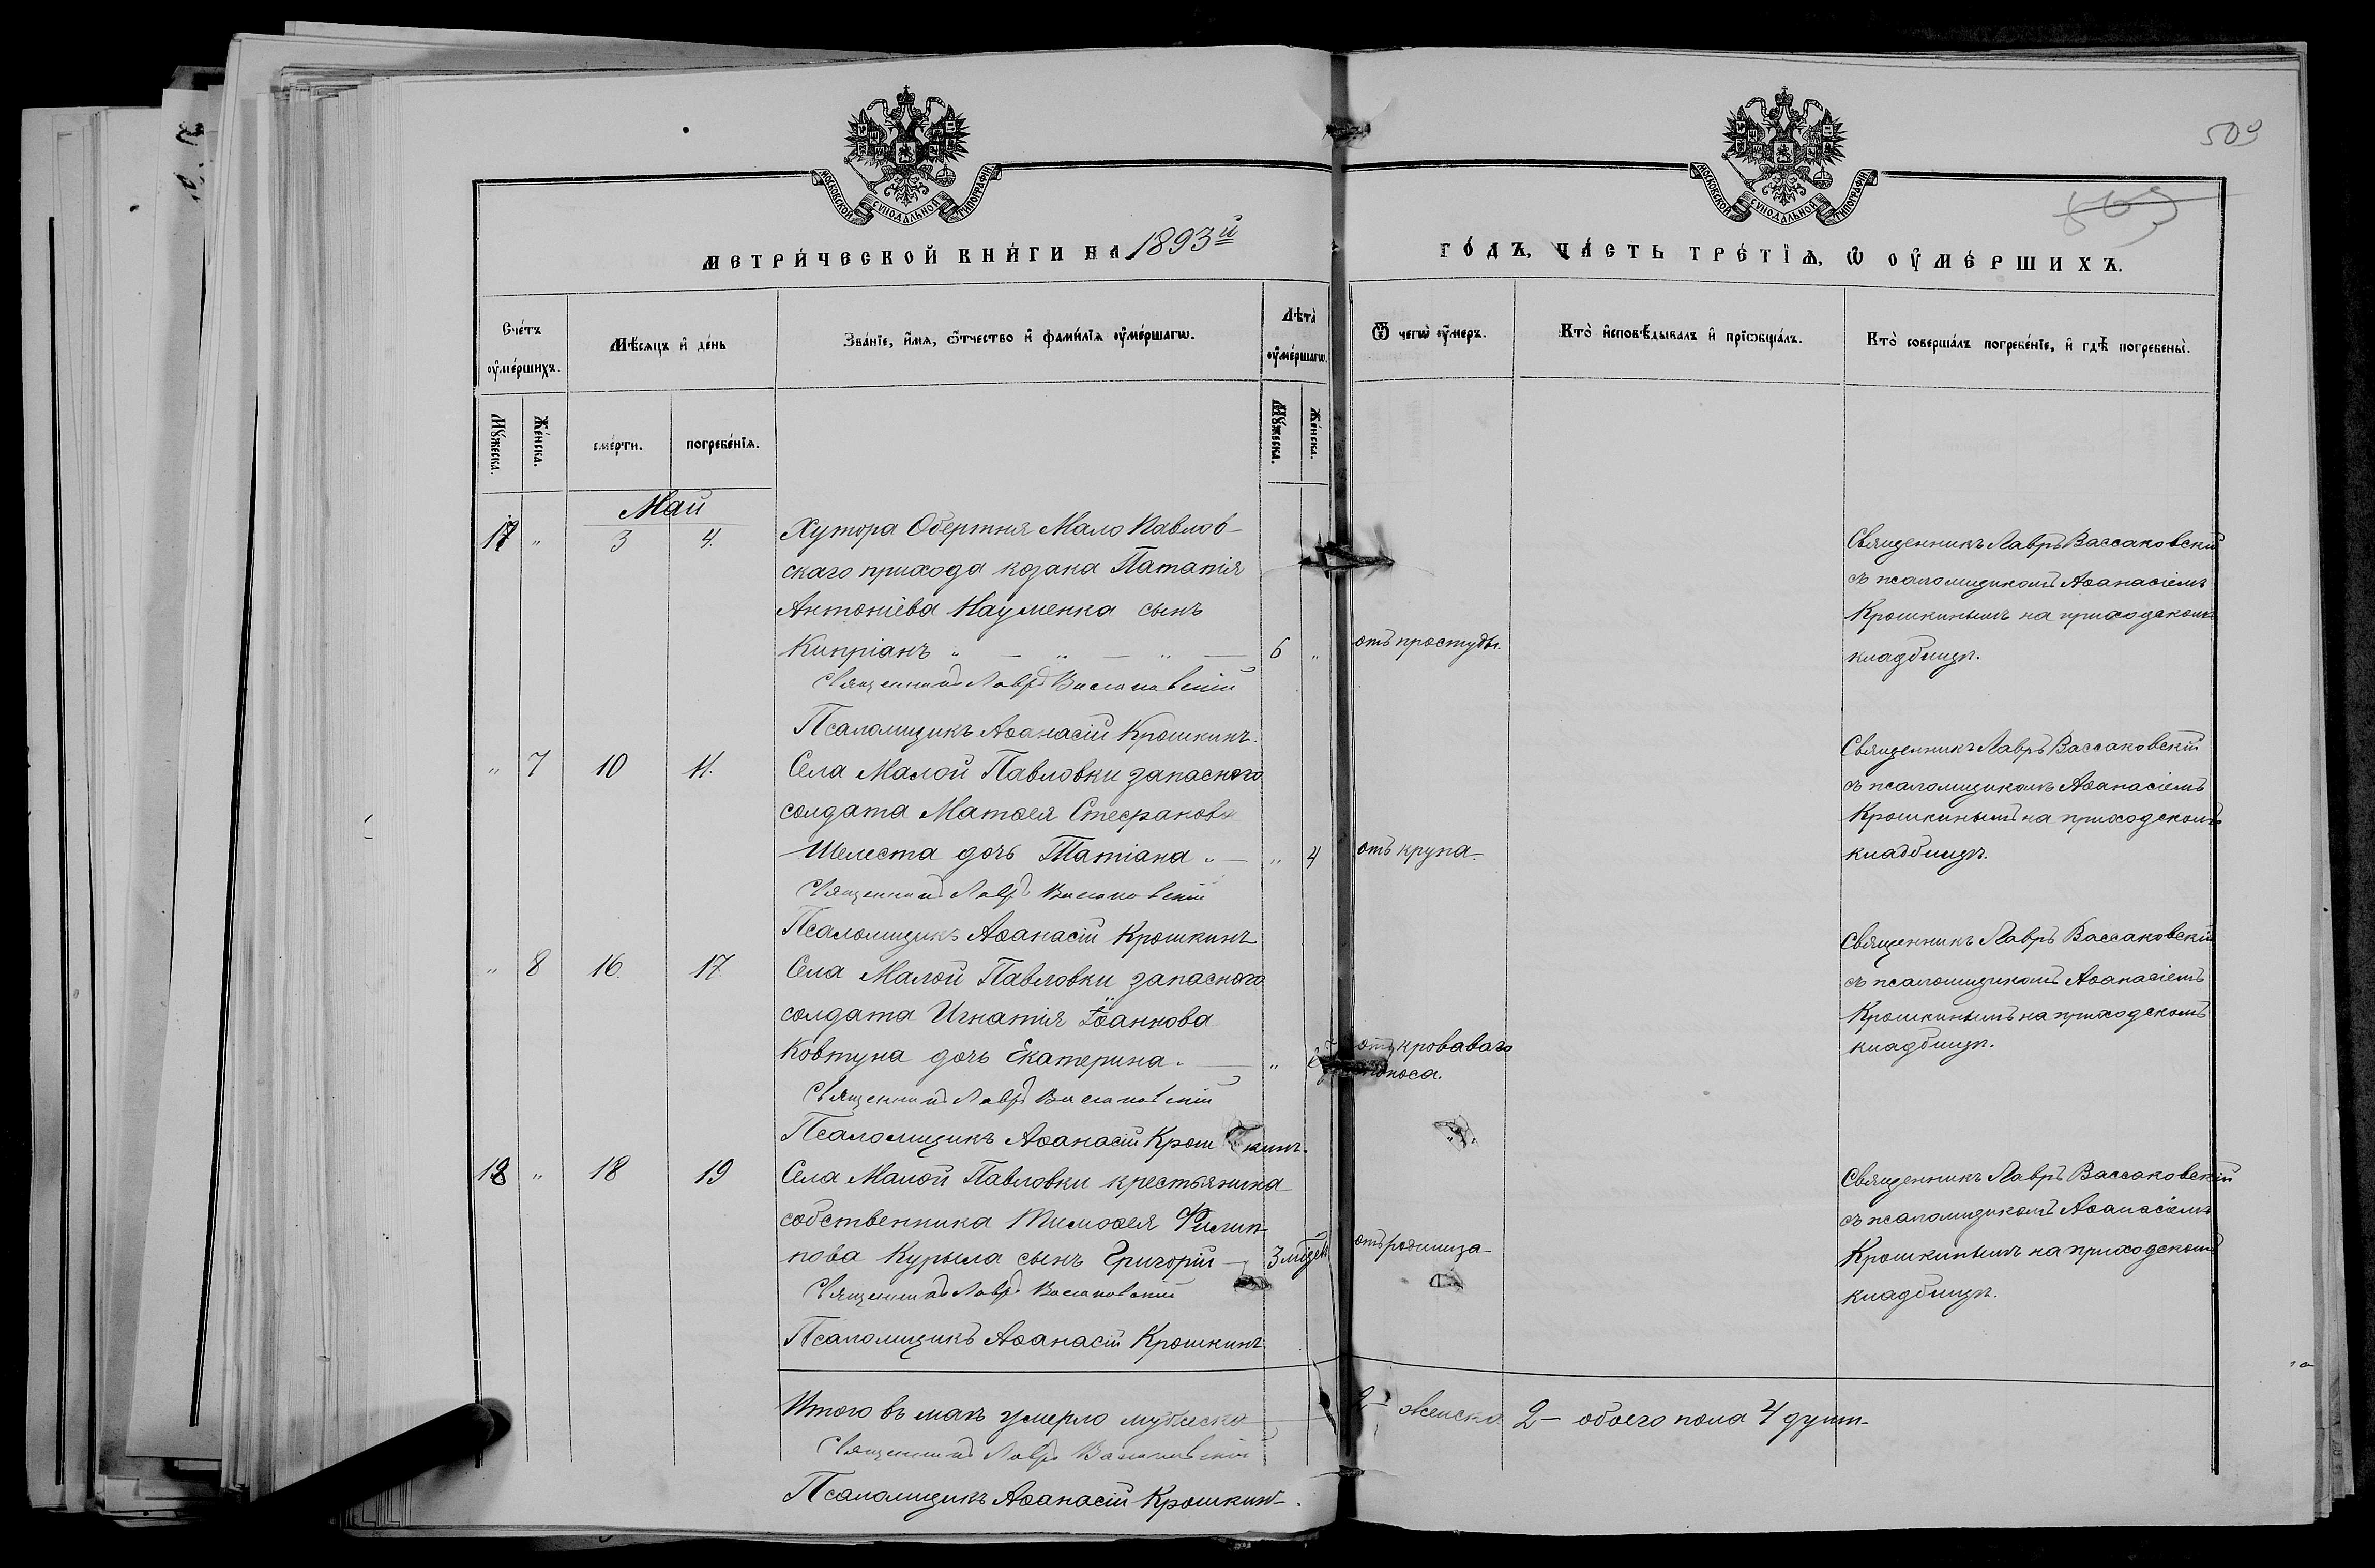 509
МОСКОВСКОЙ СѴНОДАЛЬНОЙ ТИПОГРАФІИ
МОСКОВСКОЙ СѴНОДАЛЬНОЙ ТИПОГРАФІИ
МЕТРИ́ЧЕСКОЙ КНИ́ГИ НА 1893й
ГО́ДЪ, ЧА́СТЬ ТРЕ́ТІѦ, Ѡ ОУ҆МЕ́РШИХЪ.
Сче́тъ оу҆ме́ршихъ.
Мѣ́сяцъ и҆ де́нь
Зва́нїе, и҆́мѧ, ѻ҆́тчество и҆ фами́лїѧ оу҆ме́ршагѡ.
Лѣта̀ оу҆ме́ршагѡ.
Ѿ чегѡ̀ оу҆́меръ.
Кто̀ и҆сповѣ́дывалъ и҆ прїѡбща́лъ.
Кто̀ соверша́лъ погребе́нїе, и҆ гдѣ̀ погребены̀.
Мꙋ́жеска.
Же́нска.
сме́рти.
погребе́нїѧ.
Мꙋ́жеска.
Же́нска.
Май
17 " 3 4. Хутора Обертня Мало Павлов-
скаго прихода козака Пататія
Антоніева Науменка сынъ
Кипріанъ " — " — " — 6 " отъ простуды.
Священникъ Лавръ Вассаковскій
Псаломщикъ Аѳанасій Крошкинъ.
Священникъ Лавръ Вассаковскій
съ псаломщикомъ Аѳанасіемъ
Крошкинымъ на приходскомъ
кладбищѣ.
" 7 10 11. Села Малой Павловки запасного
солдата Матѳея Стефанова
Шелеста дочь Татіана " — " 4 отъ крупа.
Священникъ Лавръ Вассаковскій
Псаломщикъ Аѳанасій Крошкинъ
Священникъ Лавръ Вассаковскій
съ псаломщикомъ Аѳанасіемъ
Крошкинымъ на приходскомъ
кладбищѣ.
" 8 16. 17. Села Малой Павловки запасного
солдата Игнатія Іоаннова
Ковтуна дочь Екатерина. — " отъ кроваваго
поноса.
Священникъ Лавръ Вассаковскій
Псаломщикъ Аѳанасій Крошкинъ.
Священникъ Лавръ Вассаковскій
съ псаломщикомъ Аѳанасіемъ
Крошкинымъ на приходскомъ
кладбищѣ.
18 " 18 19 Села Малой Павловки крестьянина
собственника Тимоѳея Филип-
пова Курыла сынъ Григорій — отъ родимца
Священникъ Лавръ Вассаковскій
Псаломщикъ Аѳанасій Крошкинъ
Священникъ Лавръ Вассаковскій
съ псаломщикомъ Аѳанасіемъ
Крошкинымъ на приходскомъ
кладбищѣ.
Итого въ маѣ умерло мужеска — 2 — женска 2 — обоего пола 4 душ-
Священникъ Лавръ Вассаковскій
Псаломщикъ Аѳанасій Крошкинъ.